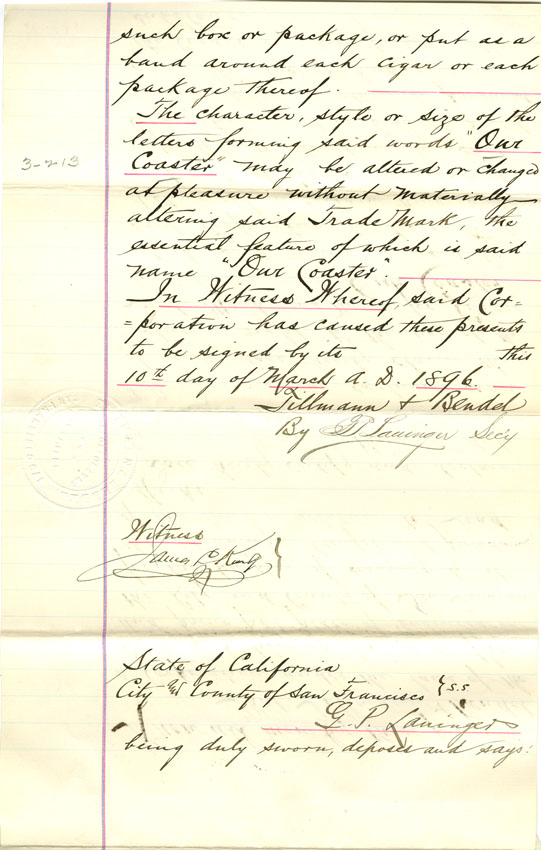 such box or package, or put as a
band around each cigar or each
package thereof.
The character, style or size of the
letters forming said words "Our
Coaster" may be altered or changed
at pleasure without materially
altering said Trade Mark, the
essential feature of which is said
name "Our Coaster".
In Witness Whereof, said Cor=
=poration has caused these presents
to be signed by its this
10th day of March A. D. 1896.
Tillmann & Bendel
By G. P. Lauinger Sec'y
3-213
Witness
James C King }
State of California
City & County of San Francisco } S.S
G. P. Lauinger
being duly sworn, deposes and says: